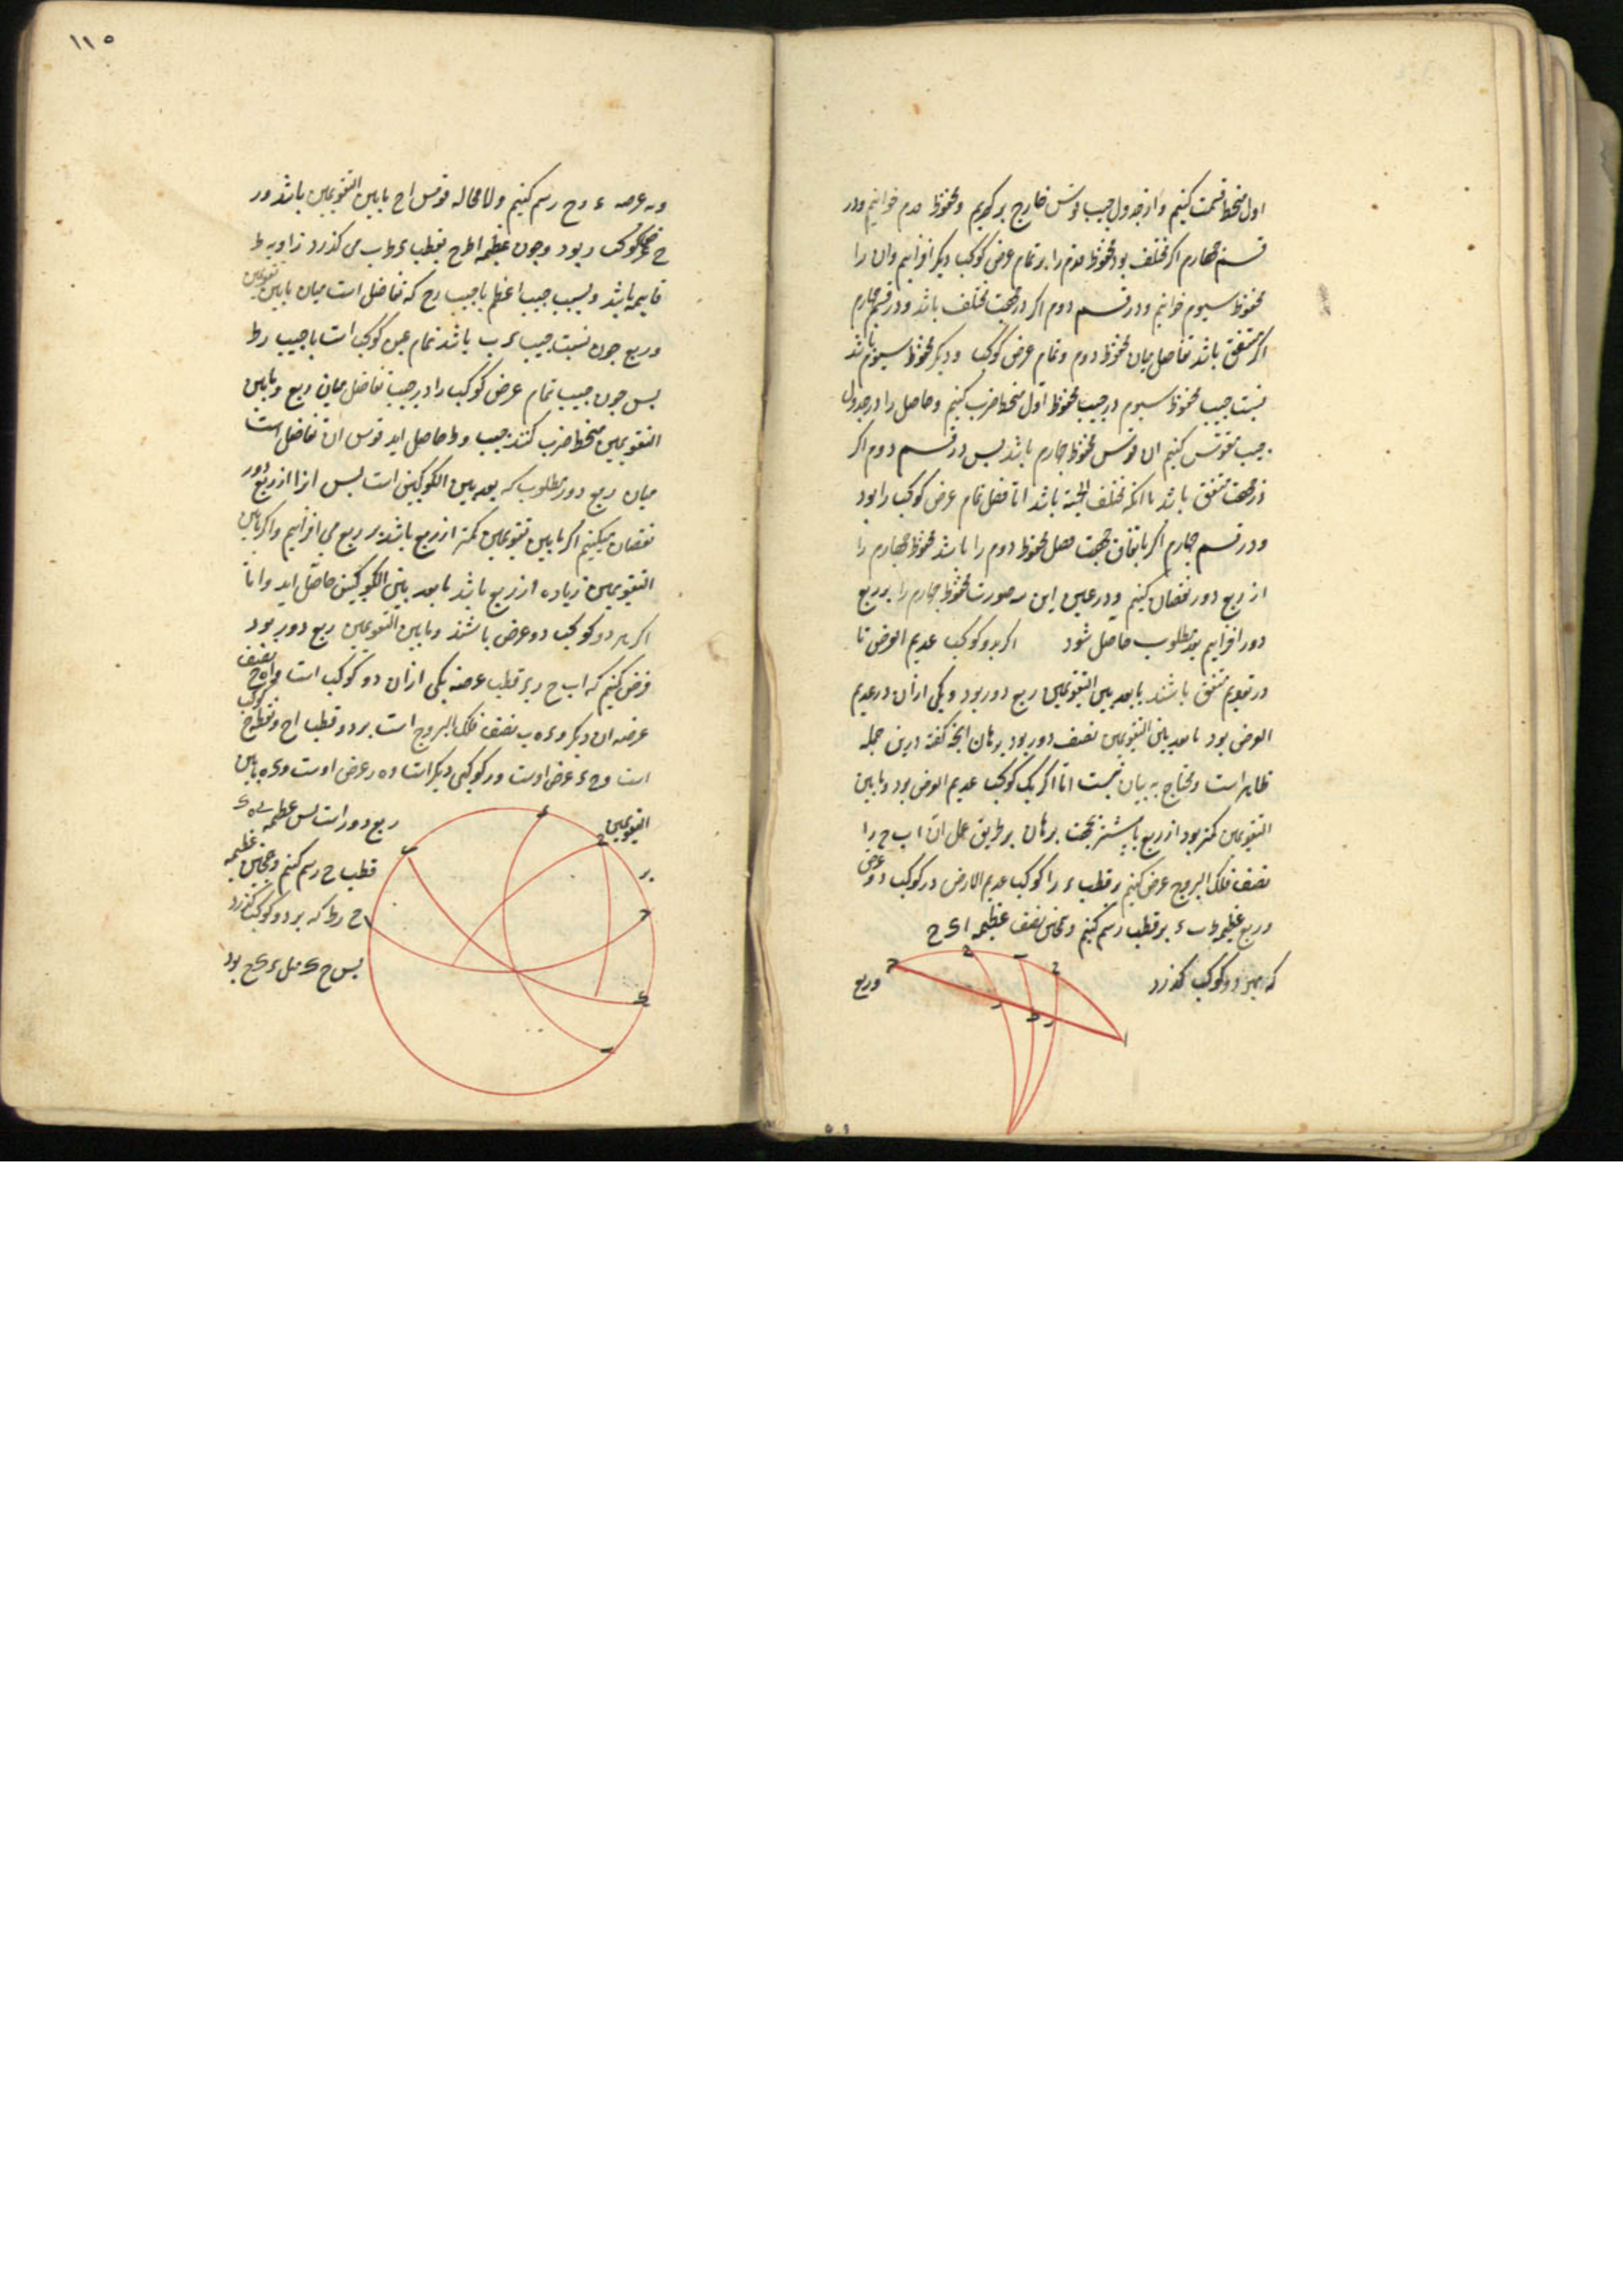 اول منحط قسمت کنیم و از جدول جیب قوسش خارج برکیریم و محفوظ دوم خوانیم و در
قسم چهارم اکر مختلف بود محفوظ دوم را بر تمام عرض کوکب دیکر افزاییم و ان را
محفوظ سیوم خوانیم و در قسم دوم اکر در جهت مختلف باشد و در قسم چهارم
اکر متفق باشد تفاضل میان محفوظ دوم و تمام عرض کوکب دیکر محفوظ سیوم باشد
بست جیب محفوظ سیوم در جیب محفوظ اول منحط ضرب کنیم و حاصل را در جدول
جیب مقوس کنیم ان قوس محفوظ چهارم باشد بس در قسم دوم اکر
در جهت متفق باشد یا انکه مختلف الجهة باشد اما فضل تمام عرض کوکب را بود
و در قسم چهارم اکر باتفاق جهت فضل محفوظ دوم را باشد محفوظ چهارم را
از ربع دور نقصان کنیم و در غیر این صورت محفوظ چهارم را بر ربع
دور افزاییم بعد مطلوب حاصل شود اکر هر دو کوکب عدیم العرض تا
در تقویم متفق باشند یا بعد بین التقویمین ربع دور بود و یکی از ان دو عدیم
العرض بود یا بعد بین التقویمین نصف دور بود برهان انچه کفته درین جمله
ظاهر است و محتاج به بیان نیست اما اکر یک کوکب عدیم العرض بود و ما بین
التقویمین کمتر بود از ربع یا بیشتر بجهت برهان بر طریق عمل ان ا ب ج را
نصف فلک البروج فرض کنیم بر قطب ء را کوکب عدیم العرض و ر کوکب ذو عرض
و ربع عظیمه ط ب ء بر قطب رسم کنیم و همچنین نصف عظیمه ا ء ح
که بهر دو کوکب کذرد
وربع
١١٥
و ربع عرضیه ء ر ح رسم کنیم و لا محاله قوس ا ح ما بین التقویمین باشد و ر
ح عرض کوکب ر بود و چون عظیمه ا ط ح بقطب ء ط ب می کذرد زاویه ط
قایمه باشد و نسبت جیب اعظم با جیب ر ح که تفاضل است میان ما بین تقویمین
و ربع چون نسبت جیب ء ب باشد تمام عرض کوکب است با جیب ر ط
بس چون جیب تمام عرض کوکب را در جیب تفاضل میان ربع و ما بین
التقویمین منحط ضرب کنند جیب ر ط حاصل اید قوس ان تفاضل است
میان ربع دور و مطلوب که بعد بین الکوکبین است بس انرا از ربع دور
نقصان میکنیم اکر ما بین تقویمین کمتر از ربع باشد و بر ربع می افزاییم و اکر ما بین
التقویمین زیاده از ربع باشد تا بعد بین الکوکبین حاصل اید و اما
اکر هر دو کوکب ذو عرض باشند و ما بین التقویمین ربع دور بود
فرض کنیم که ا ب ح ر بر قطب عرضیه یکی از ان دو کوکب است و ا ه ح نصف
عرضیه ان دیکر و ء ه ب نصف فلک البروج است بر دو قطب ا ح و نقطه ح کوکب
است و ح ء عرض اوست و ر کوکبی دیکر است و ه ر عرض اوست و ء ه ما بین
التقویمین
ربع دور است بس عظیمه ب ه ء
قطب ح رسم کنیم و همچنین عظیمه
ا ح ر ط که بر دو کوکب کذرد
بس ح ء مثل ء ح بود